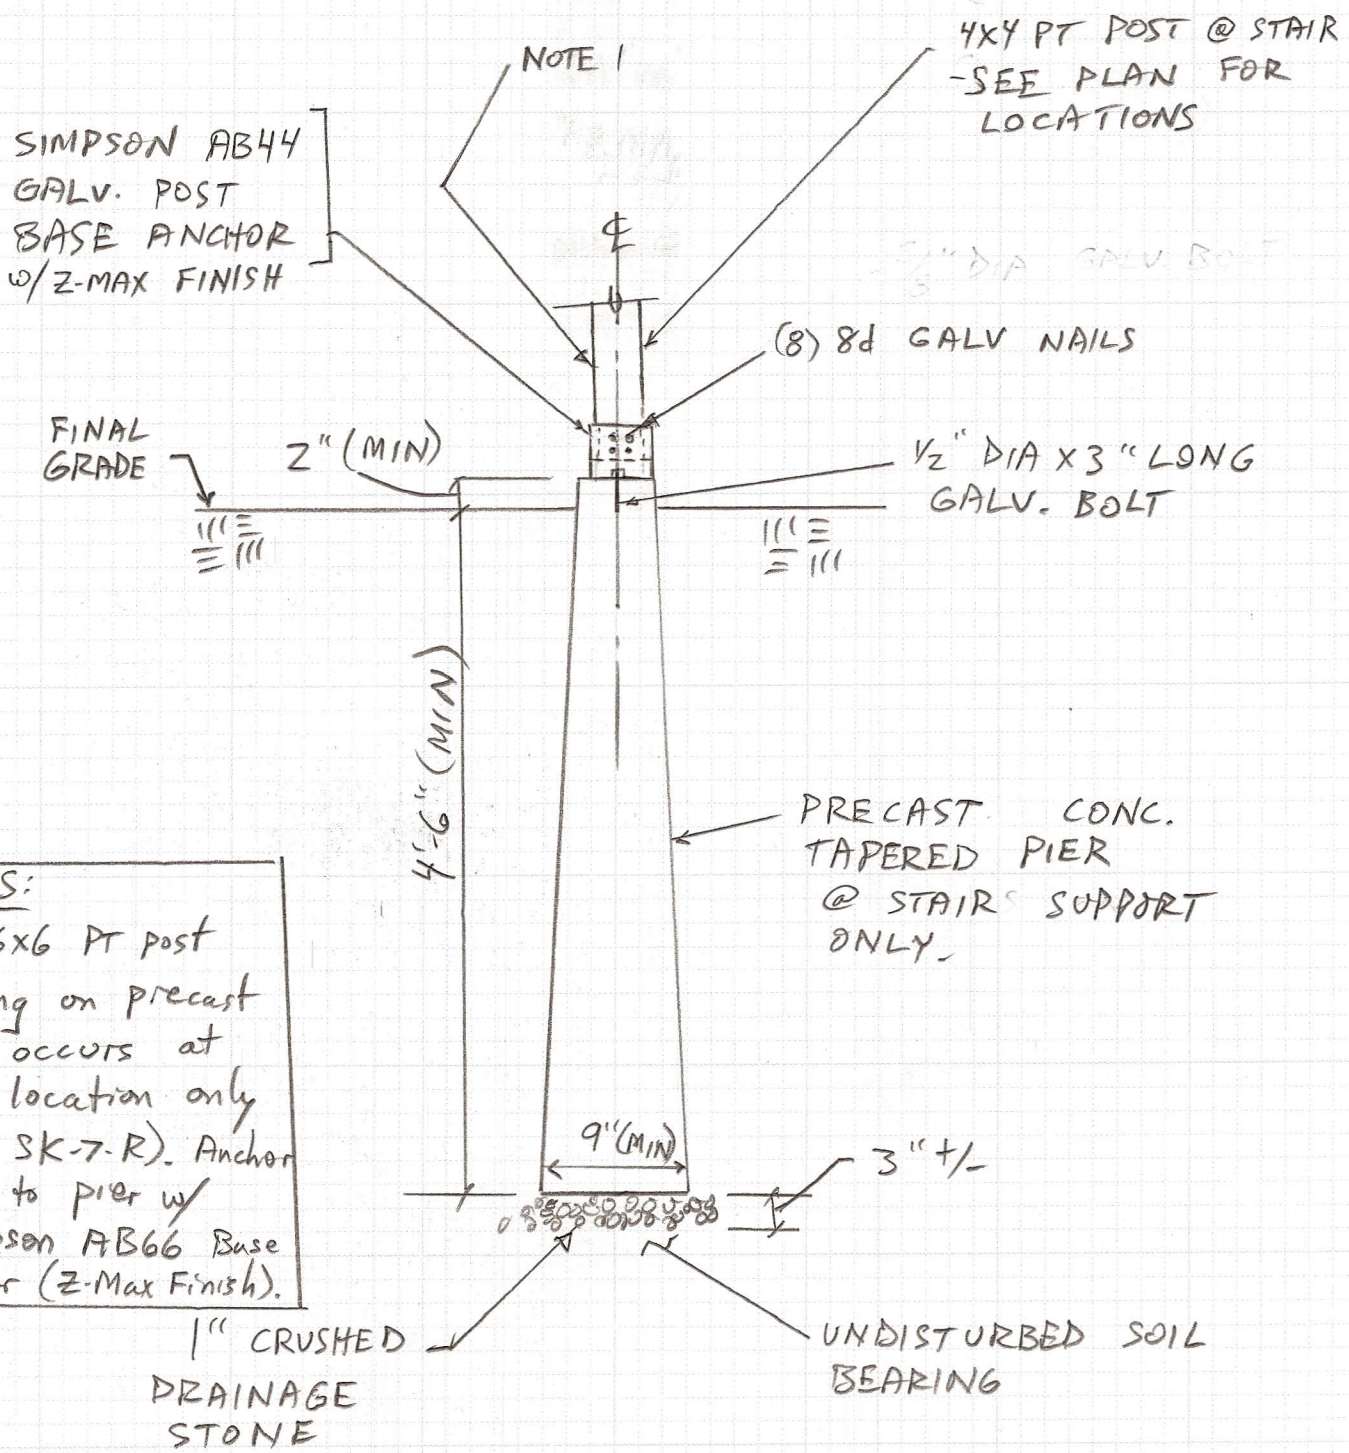 NOTE 1
4X4 PT POST @ STAIR
-SEE PLAN FOR
LOCATIONS
SIMPSON AB44
GALV. POST
BASE ANCHOR
W/ Z-MAX FINISH
℄
(8) 8d GALV NAILS
FINAL
GRADE
2" (MIN)
1/2" DIA X 3" LONG
GALV. BOLT
4'-6" (MIN)
PRECAST CONC.
TAPERED PIER
@ STAIR SUPPORT
ONLY.
S:
6x6 PT post
ng on precast
occurs at
location only
SK-7-R). Anchor
to pier w/
son AB66 Base
r (Z-Max Finish).
9" (MIN)
3" +/-
1" CRUSHED
DRAINAGE
STONE
UNDISTURBED SOIL
BEARING